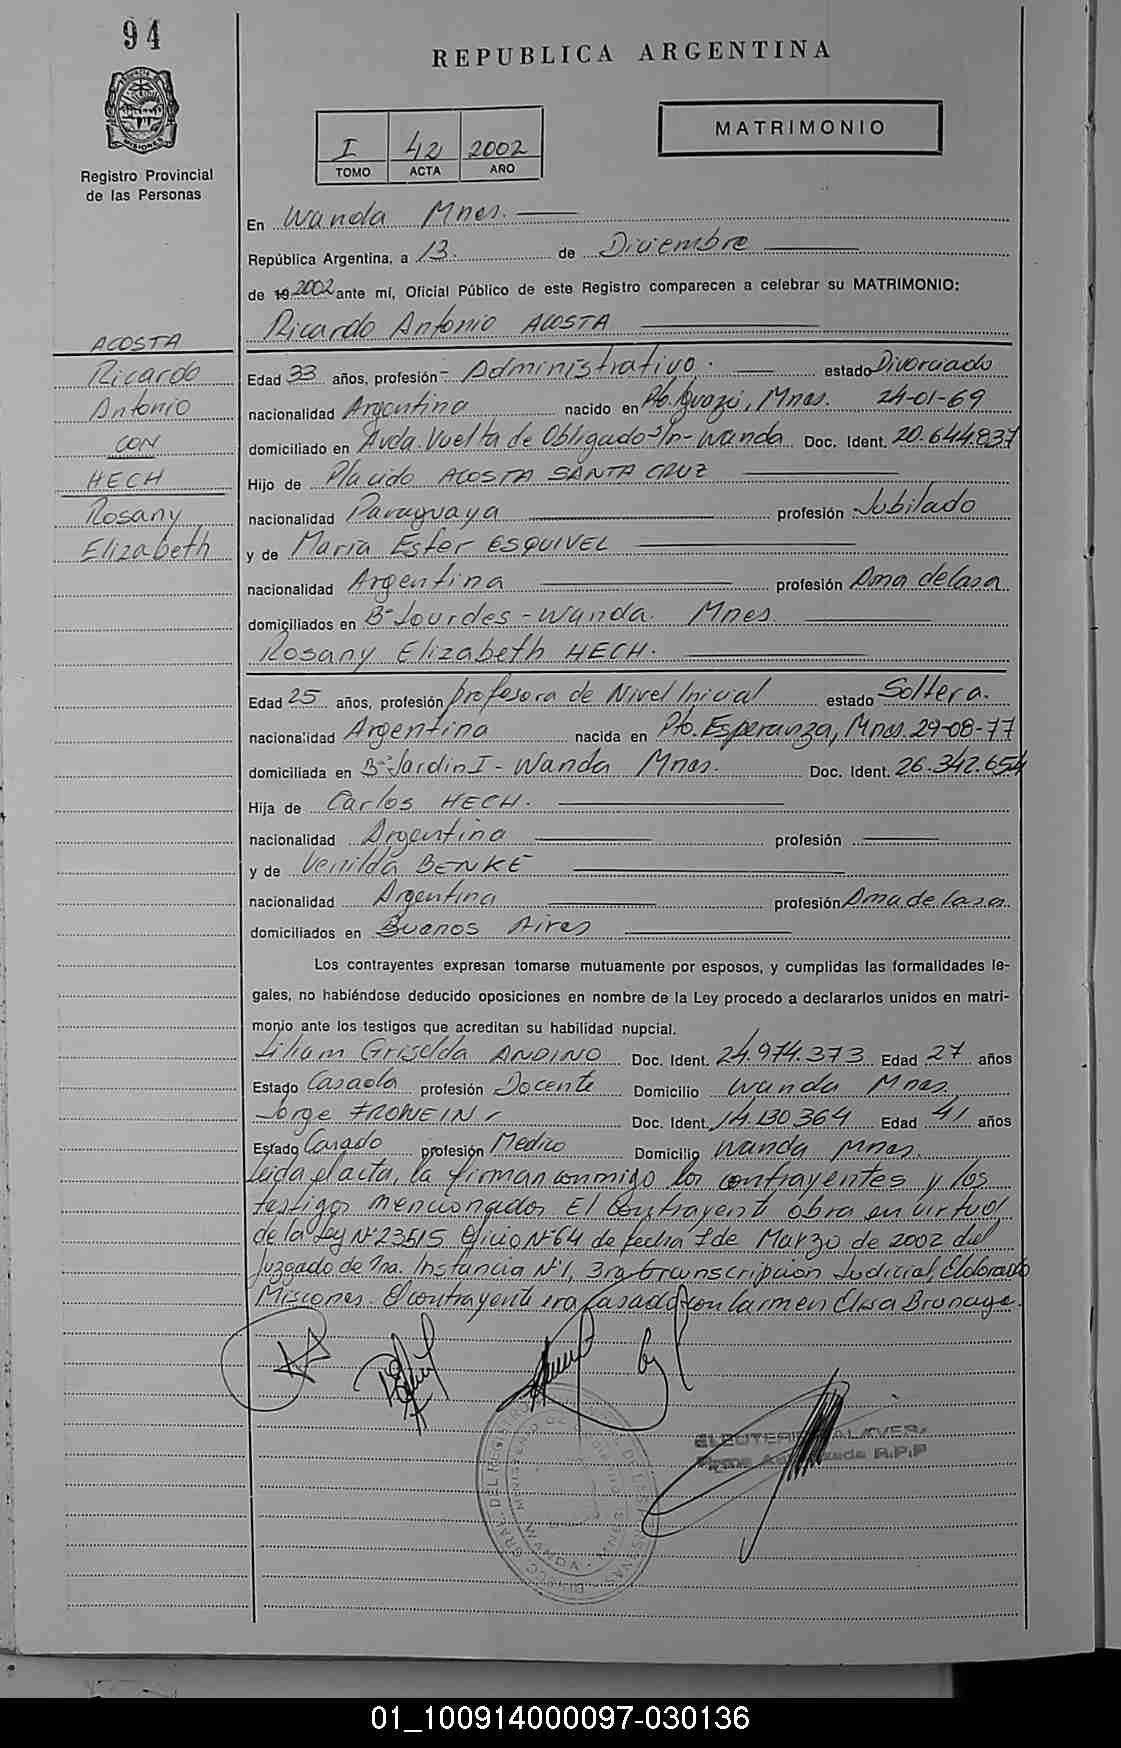 94
REPUBLICA ARGENTINA
MISIONES
Registro Provincial
de las Personas
I 42 2002
TOMO ACTA AÑO
MATRIMONIO
En Wanda Mnes.
República Argentina, a 13. de Diciembre
de 19 2002 ante mí, Oficial Público de este Registro comparecen a celebrar su MATRIMONIO:
Ricardo Antonio ACOSTA
ACOSTA
Ricardo
Antonio
CON
HECH
Rosany
Elizabeth
Edad 33 años, profesión Administrativo. estado Divorciado
nacionalidad Argentina nacido en Pto. Iguazú, Mnes. 24-01-69
domiciliado en Avda. Vuelta de Obligado s/n - Wanda Doc. Ident. 20.644.837
Hijo de Placido ACOSTA SANTA CRUZ
nacionalidad Paraguaya profesión Jubilado
y de María Ester ESQUIVEL
nacionalidad Argentina profesión Ama de Casa
domiciliados en Bº Lourdes - Wanda. Mnes.
Rosany Elizabeth HECH.
Edad 25 años, profesión profesora de Nivel Inicial estado Soltera.
nacionalidad Argentina nacida en Pto. Esperanza, Mnes. 29-08-77
domiciliada en Bº Jardin I - Wanda Mnes. Doc. Ident. 26.342.654
Hija de Carlos HECH.
nacionalidad Argentina profesión
y de Venilda BENKE
nacionalidad Argentina profesión Ama de Casa
domiciliados en Buenos Aires
Los contrayentes expresan tomarse mutuamente por esposos, y cumplidas las formalidades le-
gales, no habiéndose deducido oposiciones en nombre de la Ley procedo a declararlos unidos en matri-
monio ante los testigos que acreditan su habilidad nupcial.
Liliam Griselda ANDINO Doc. Ident. 24.974.373 Edad 27 años
Estado Casada profesión Docente Domicilio Wanda Mnes.
Jorge FROWEIN Doc. Ident. 14.130.364 Edad 41 años
Estado Casado profesión Medico Domicilio Wanda Mnes.
Leida el acta, la firman conmigo los contrayentes y los
testigos mencionados. El Contrayente obra en virtud
de la Ley Nº 23515 Oficio Nº 64 de fecha 1 de Marzo de 2002 del
Juzgado de 1ra. Instancia Nº 1, 3ra Circunscripcion Judicial, Eldorado
Misiones. El contrayente era Casado con Carmen Elisa
WANDA - MNES
01_100914000097-030136